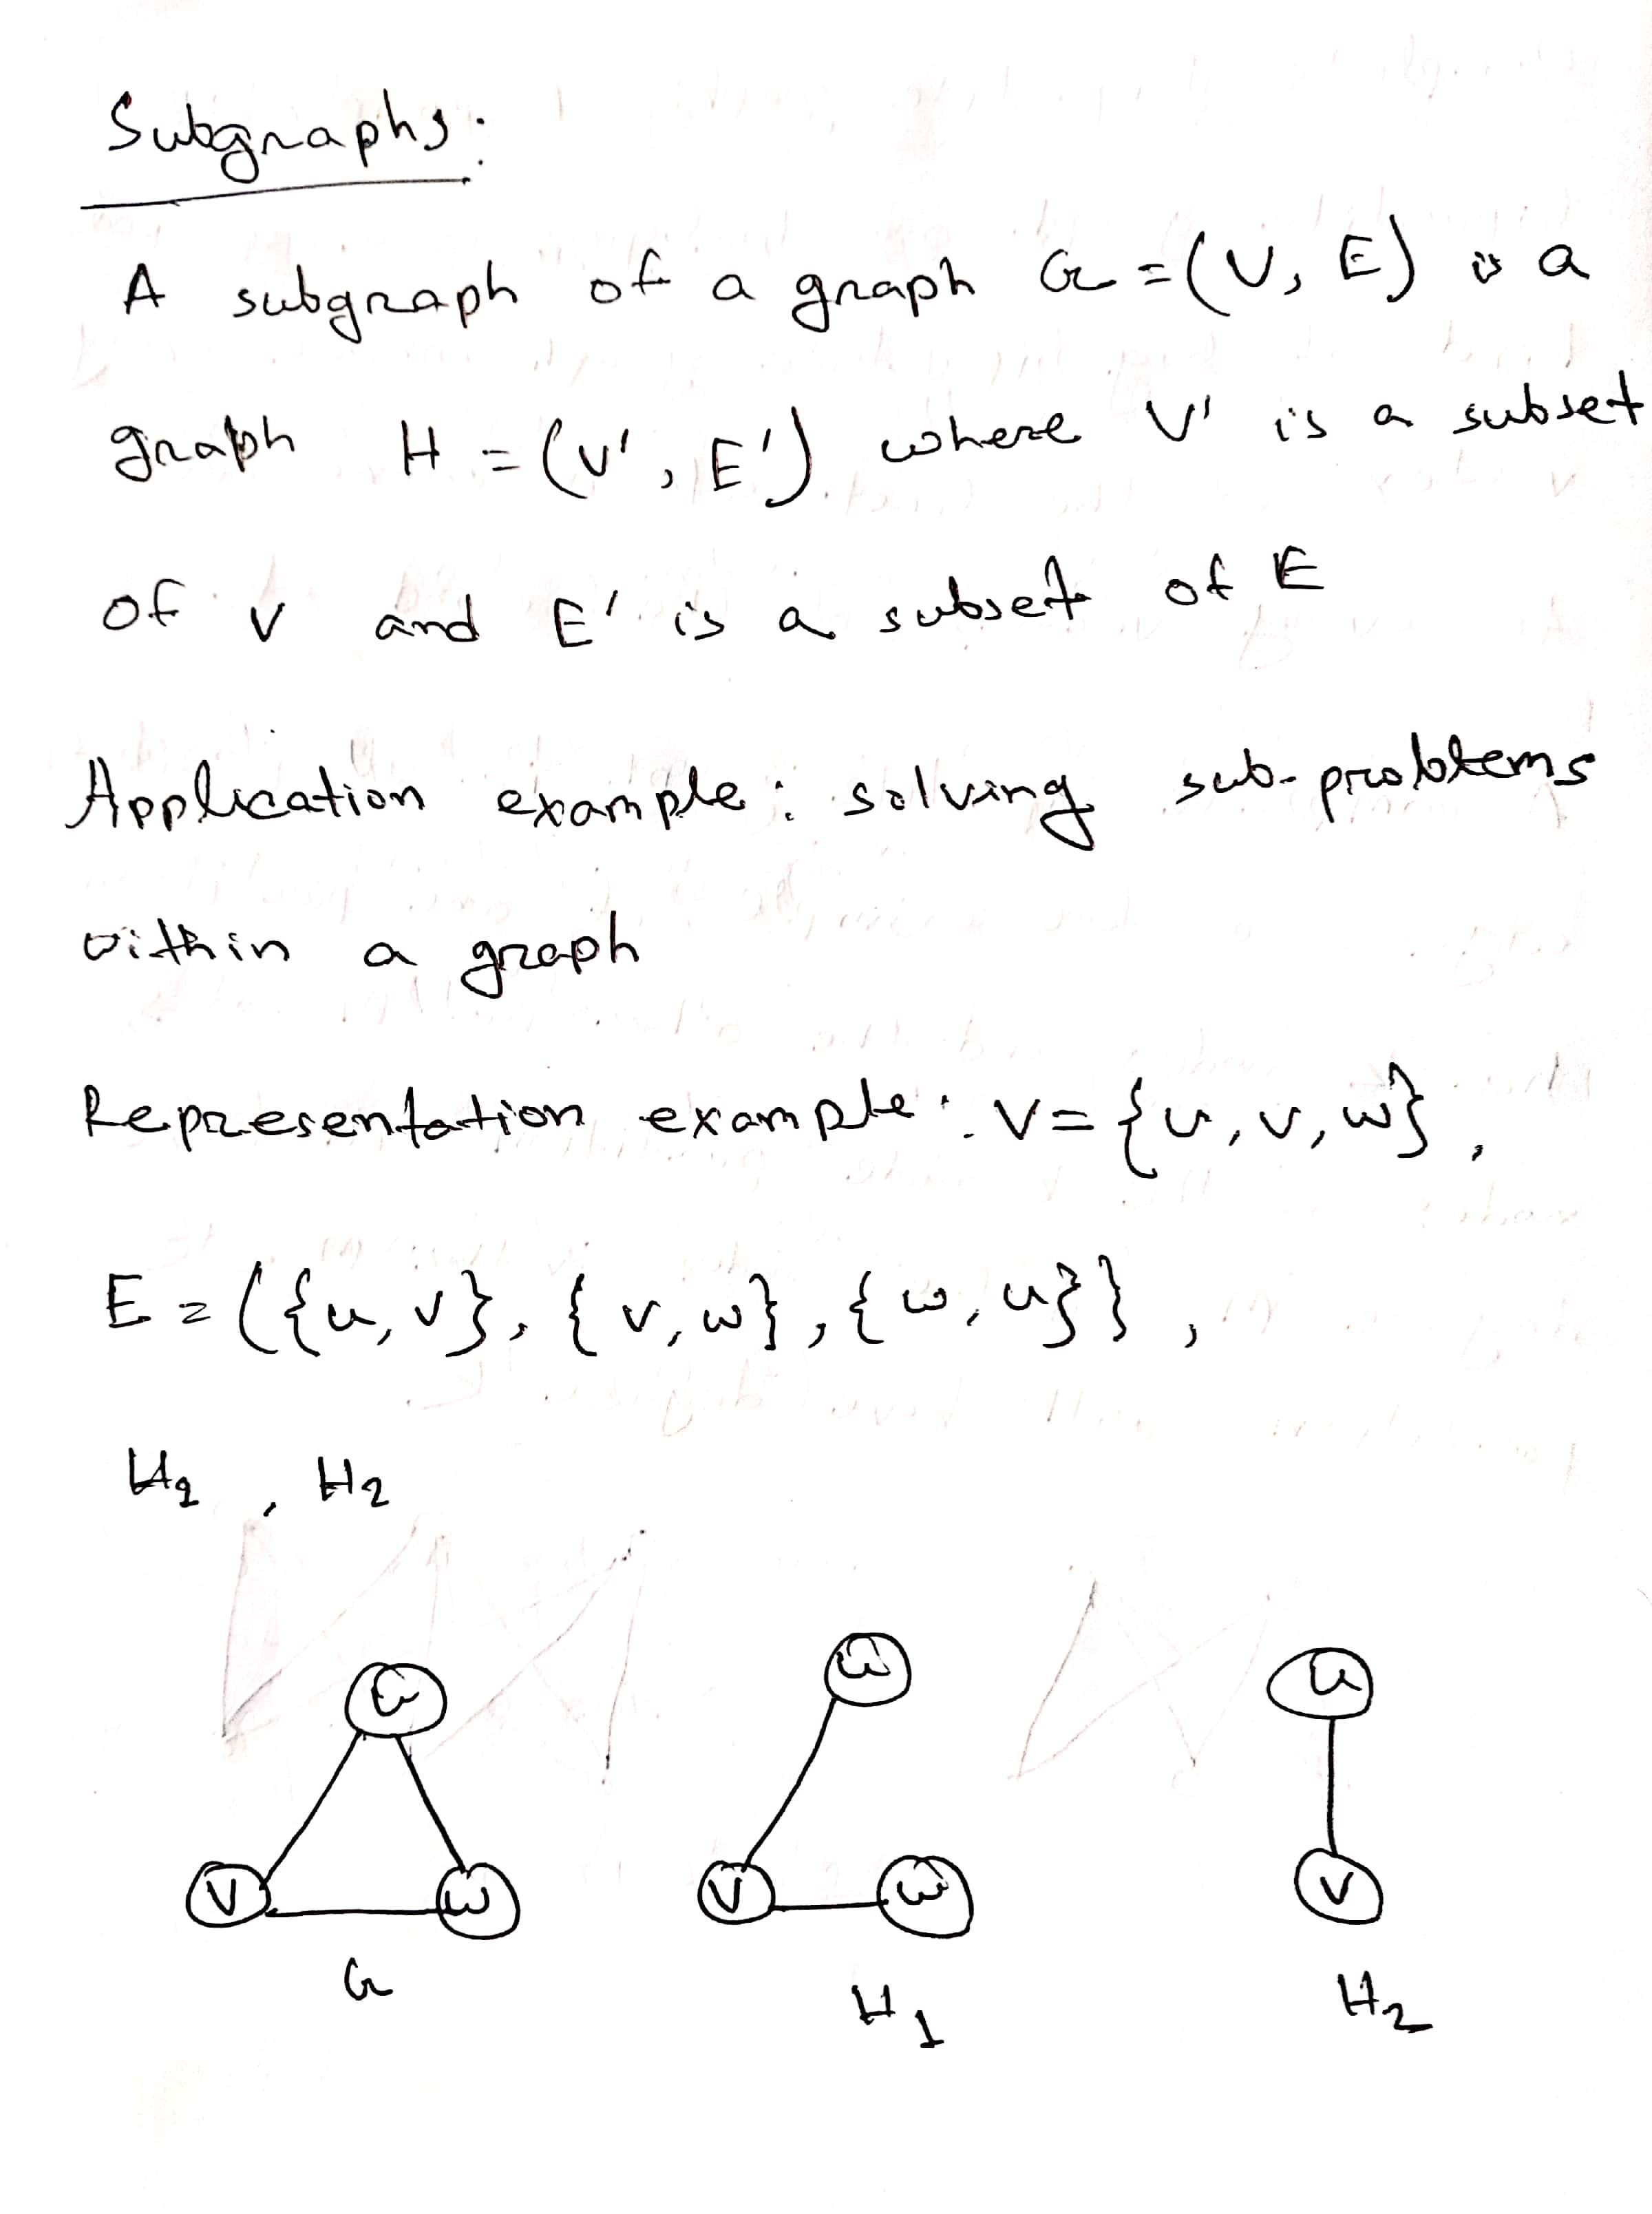 Subgraphs:
A subgraph of a graph G = (V, E) is a
graph H = (V', E') where V' is a subset
of V and E' is a subset of E
Application example: solving sub-problems
within a graph
Representation example: V = {u, v, w},
E = ({u, v}, {v, w}, {w, u}},
H1, H2
u u u
v w v w v
G H1 H2